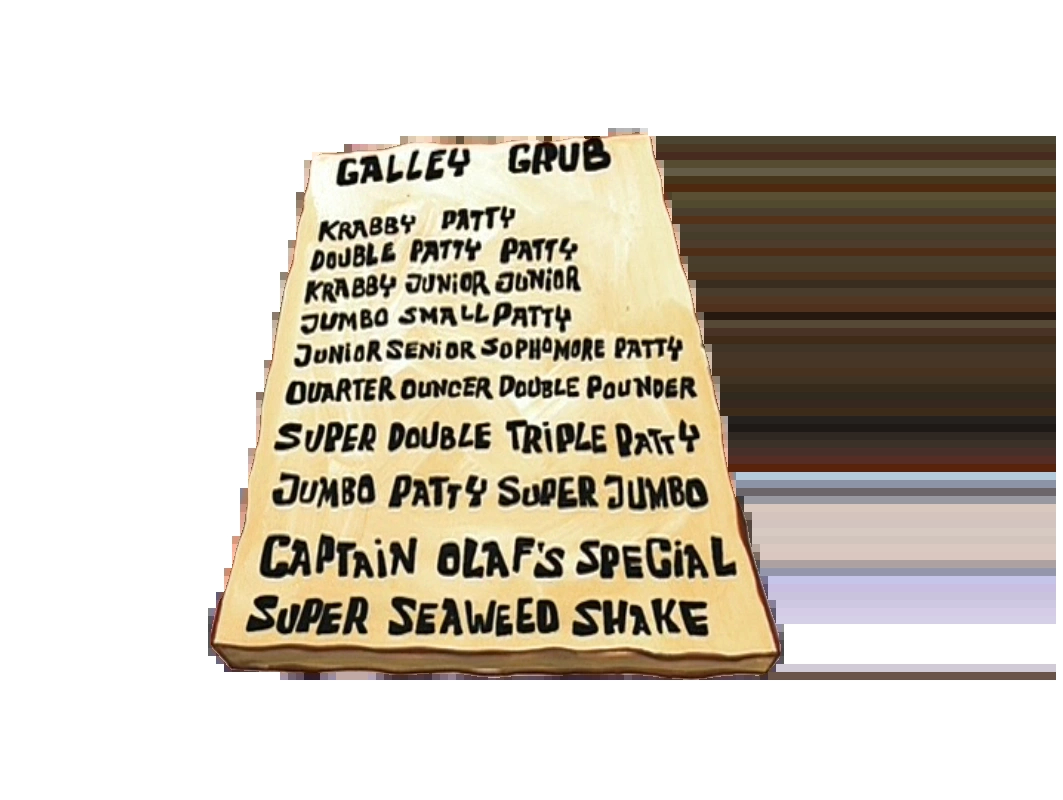 GALLEY GRUB
KRABBY PATTY
DOUBLE PATTY PATTY
KRABBY JUNIOR JUNIOR
JUMBO SMALL PATTY
JUNIOR SENIOR SOPHOMORE PATTY
QUARTER OUNCER DOUBLE POUNDER
SUPER DOUBLE TRIPLE PATTY
JUMBO PATTY SUPER JUMBO
CAPTAIN OLAF'S SPECIAL
SUPER SEAWEED SHAKE